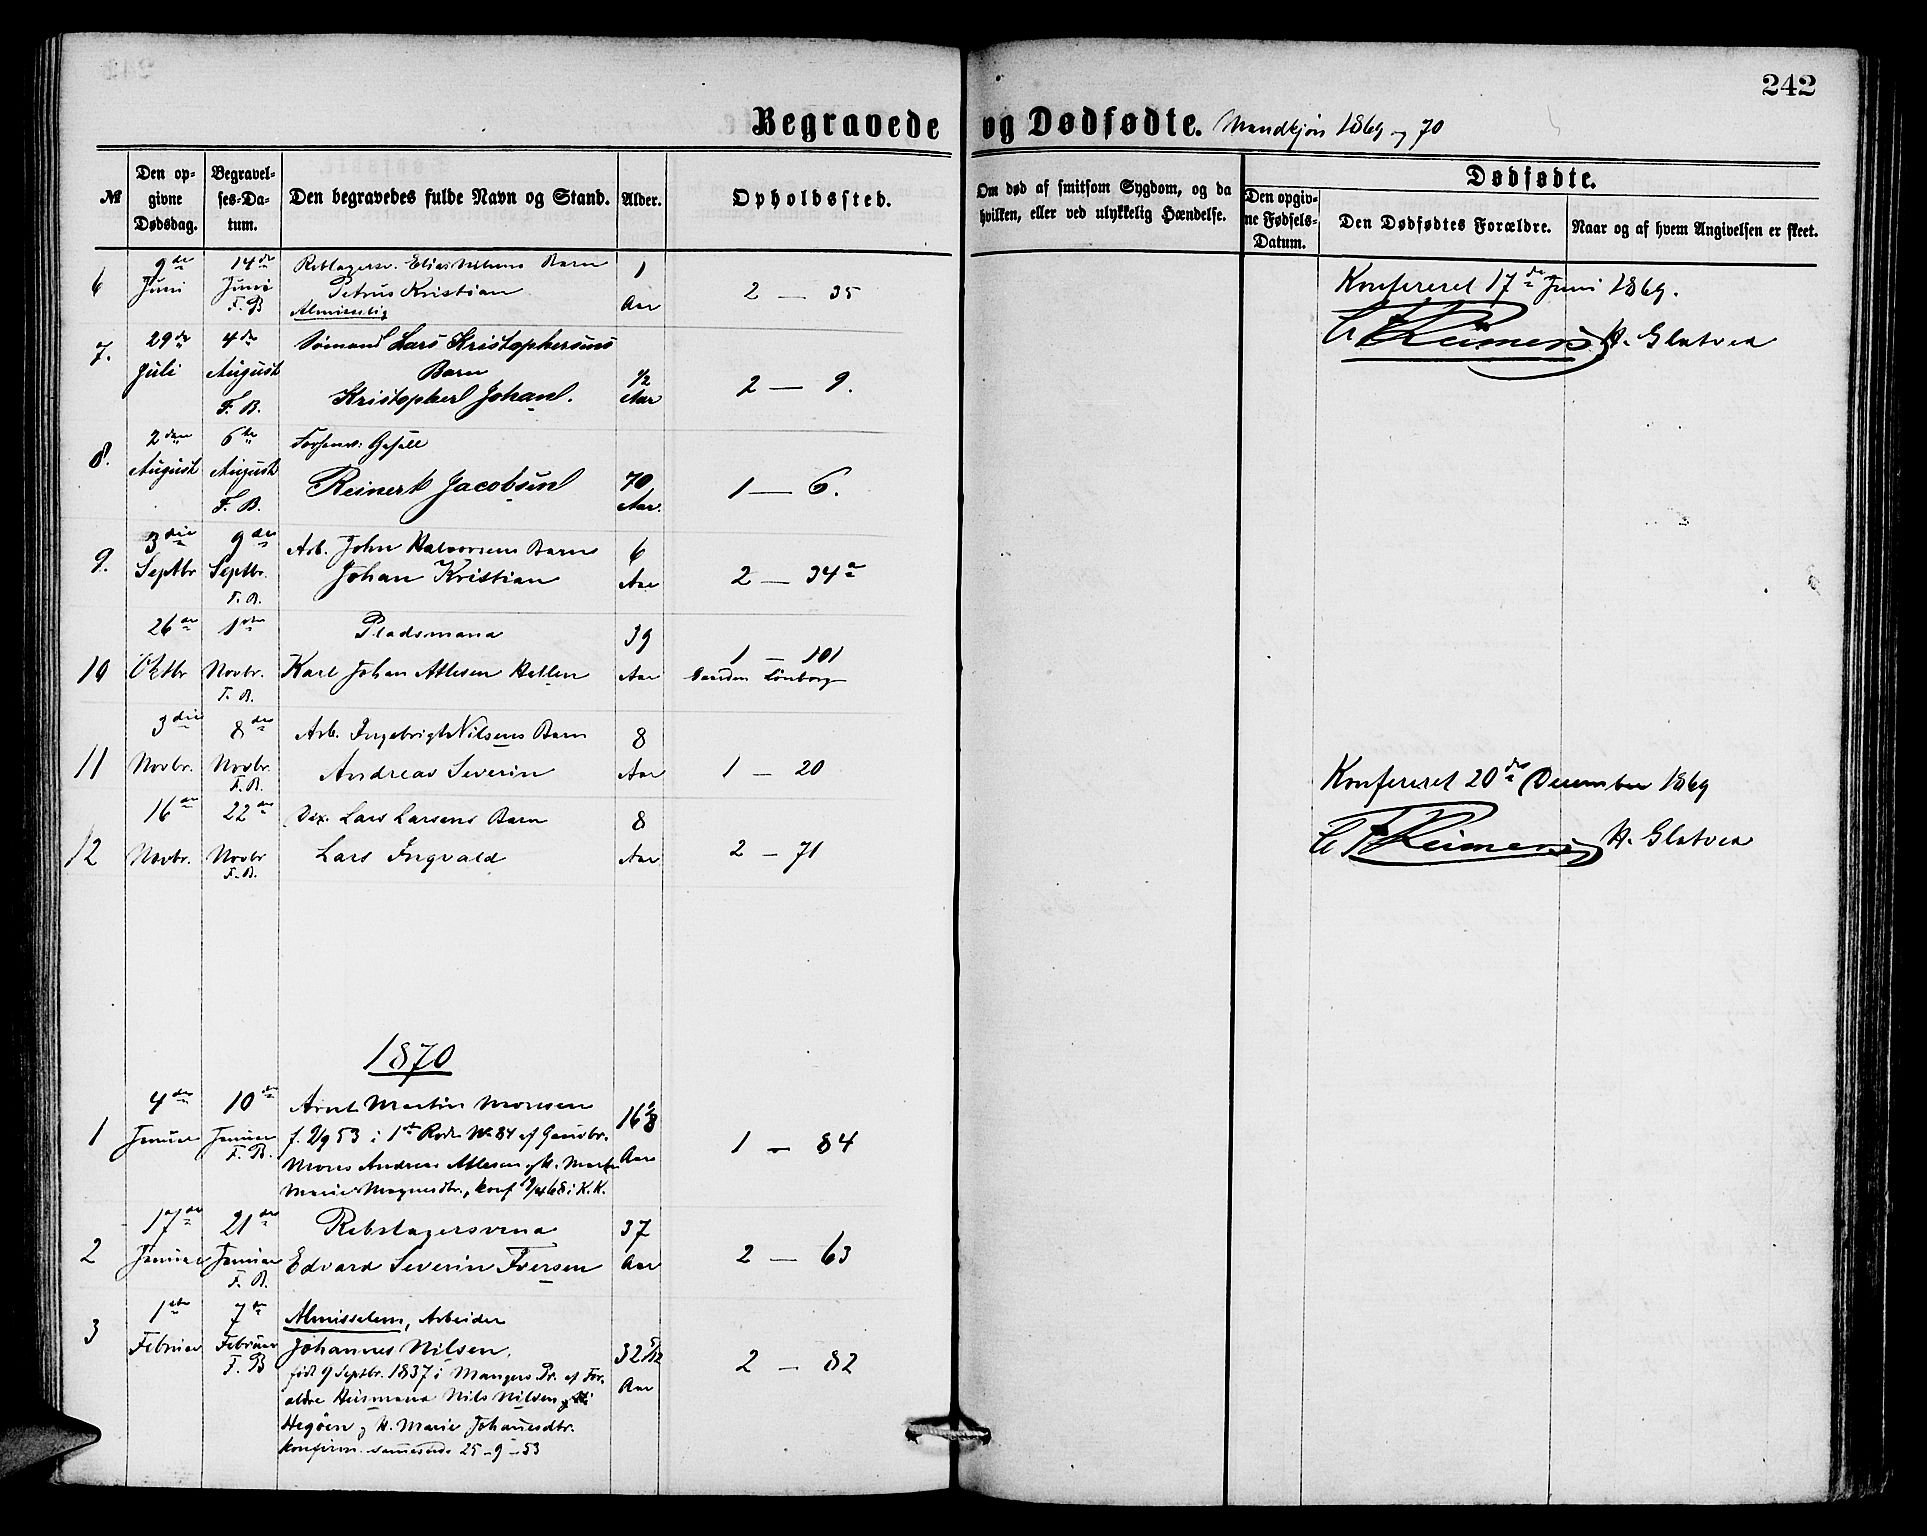 242
Begravede og Dødfødte. Mandkjøn 1869 og 70
№
Den opgivne Dødsdag.
Begravelses-Datum.
Den begravedes fulde Navn og Stand.
Alder.
Opholdssted.
Om død af smitsom Sygdom, og da hvilken, eller ved ulykkelig Hændelse.
Dødfødte.
Den opgivne Fødsels-Datum.
Den Dødfødtes Forældre.
Naar og af hvem Angivelsen er skeet.
6
9de Juni
14de Juni F. B
Reblagersv. Elias Barn
Petrus Kristian
Almisselig
1 Aar
2 — 35
Konfereret 17de Juni 1869.
C F Reimers H. Glatved
7.
29de Juli
4de August F. B.
Sømand Lars Kristophersens
Barn
Kristopher Johan.
1/2 Aar
2 — 9.
8.
2den August
6te August F. B.
Reinert Jacobsen
70 Aar.
1 — 6.
9.
3die Septbr
9de Septbr. F. B.
Arb. John Halvorsens Barn
Johan Kristian
6 Aar
2 — 34a
10
26de Oktbr
1ste Novbr. F. B.
Pladsmand
Karl Johan Atlesen Hatlen
39 Aar
1 — 101
Gaarden Lønborg
11
3die Novbr.
8de Novbr. F. B.
Arb. Ingebrigt Nilsens Barn
Andreas Severin
8 Aar
1 — 20
Konfereret 20de December 1869
C F Reimers H. Glatved
12
16de Novbr.
22de Novbr F. B.
Lars Larsens Barn
Lars Ingvald
8 Aar
2 — 71
1870
1
4de Januar
10de Januar F. B.
Arnt Martin Monsen
f. 2/9 53 i 1ste Rode No 84 af Gaardbr.
Mons Andreas Atlesen og H. Marta
Marie Magnesdtr., konf 9/4 68 i K. K.
16 Aar
1 — 84
2
17de Januar
21de Januar F. B.
Rebslagersvend
Edvard Severin Iversen
37 Aar
2 — 63
3
1ste Februar
7de Februar F. B
Almisselem, Arbeider
Johannes Nilsen,
født 9 Septbr. 1837 i Mangers Pr. af For-
ældre Husmand Nils Nilsen
Hegøen og H. Marie Johannesdtr.
konfirm. sammesteds 25-9-53
32 5/12 Aar
2 — 82